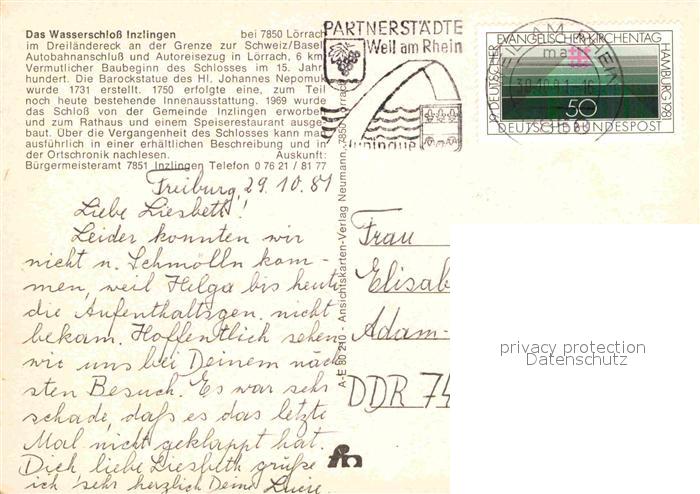 Das Wasserschloß Inzlingen bei 7850 Lörrach
im Dreiländereck an der Grenze zur Schweiz/Basel
Autobahnanschluß und Autoreisezug in Lörrach, 6 km
Vermutlicher Baubeginn des Schlosses im 15. Jahr
hundert. Die Barockstatue des Hl. Johannes Nepomuk
wurde 1731 erstellt. 1750 erfolgte eine, zum Teil
noch heute bestehende Innenausstattung. 1969 wurde
das Schloß von der Gemeinde Inzlingen erworben
und zum Rathaus und einem Speiserestaurant ausge
baut. Über die Vergangenheit des Schlosses kann man
ausführlich in einer erhältlichen Beschreibung und in
der Ortschronik nachlesen. Auskunft:
Bürgermeisteramt 7851 Inzlingen Telefon 0 76 21 / 81 77
PARTNERSTÄDTE
Weil am Rhein
Huningue
19. DEUTSCHER EVANGELISCHER KIRCHENTAG HAMBURG 1981
50
DEUTSCHE BUNDESPOST
WEIL AM RHEIN
30.10.81-16
A-E 80 210 - Ansichtskarten-Verlag Neumann, 7850 Lörrach
Freiburg, 29.10.81
Liebe Liesbeth!
Leider konnten wir
nicht n. Schmölln kom-
men, weil Helga bis heute
die Aufenthaltsgen. nicht
bekam. Hoffentlich sehen
wir uns bei Deinem näch
sten Besuch. Es war sehr
schade, daß es das letzte
Mal nicht geklappt hat.
Dich liebe Liesbeth grüße
ich sehr herzlich Deine Luise
Frau
Elisab
Adam-
DDR 74
privacy protection
Datenschutz